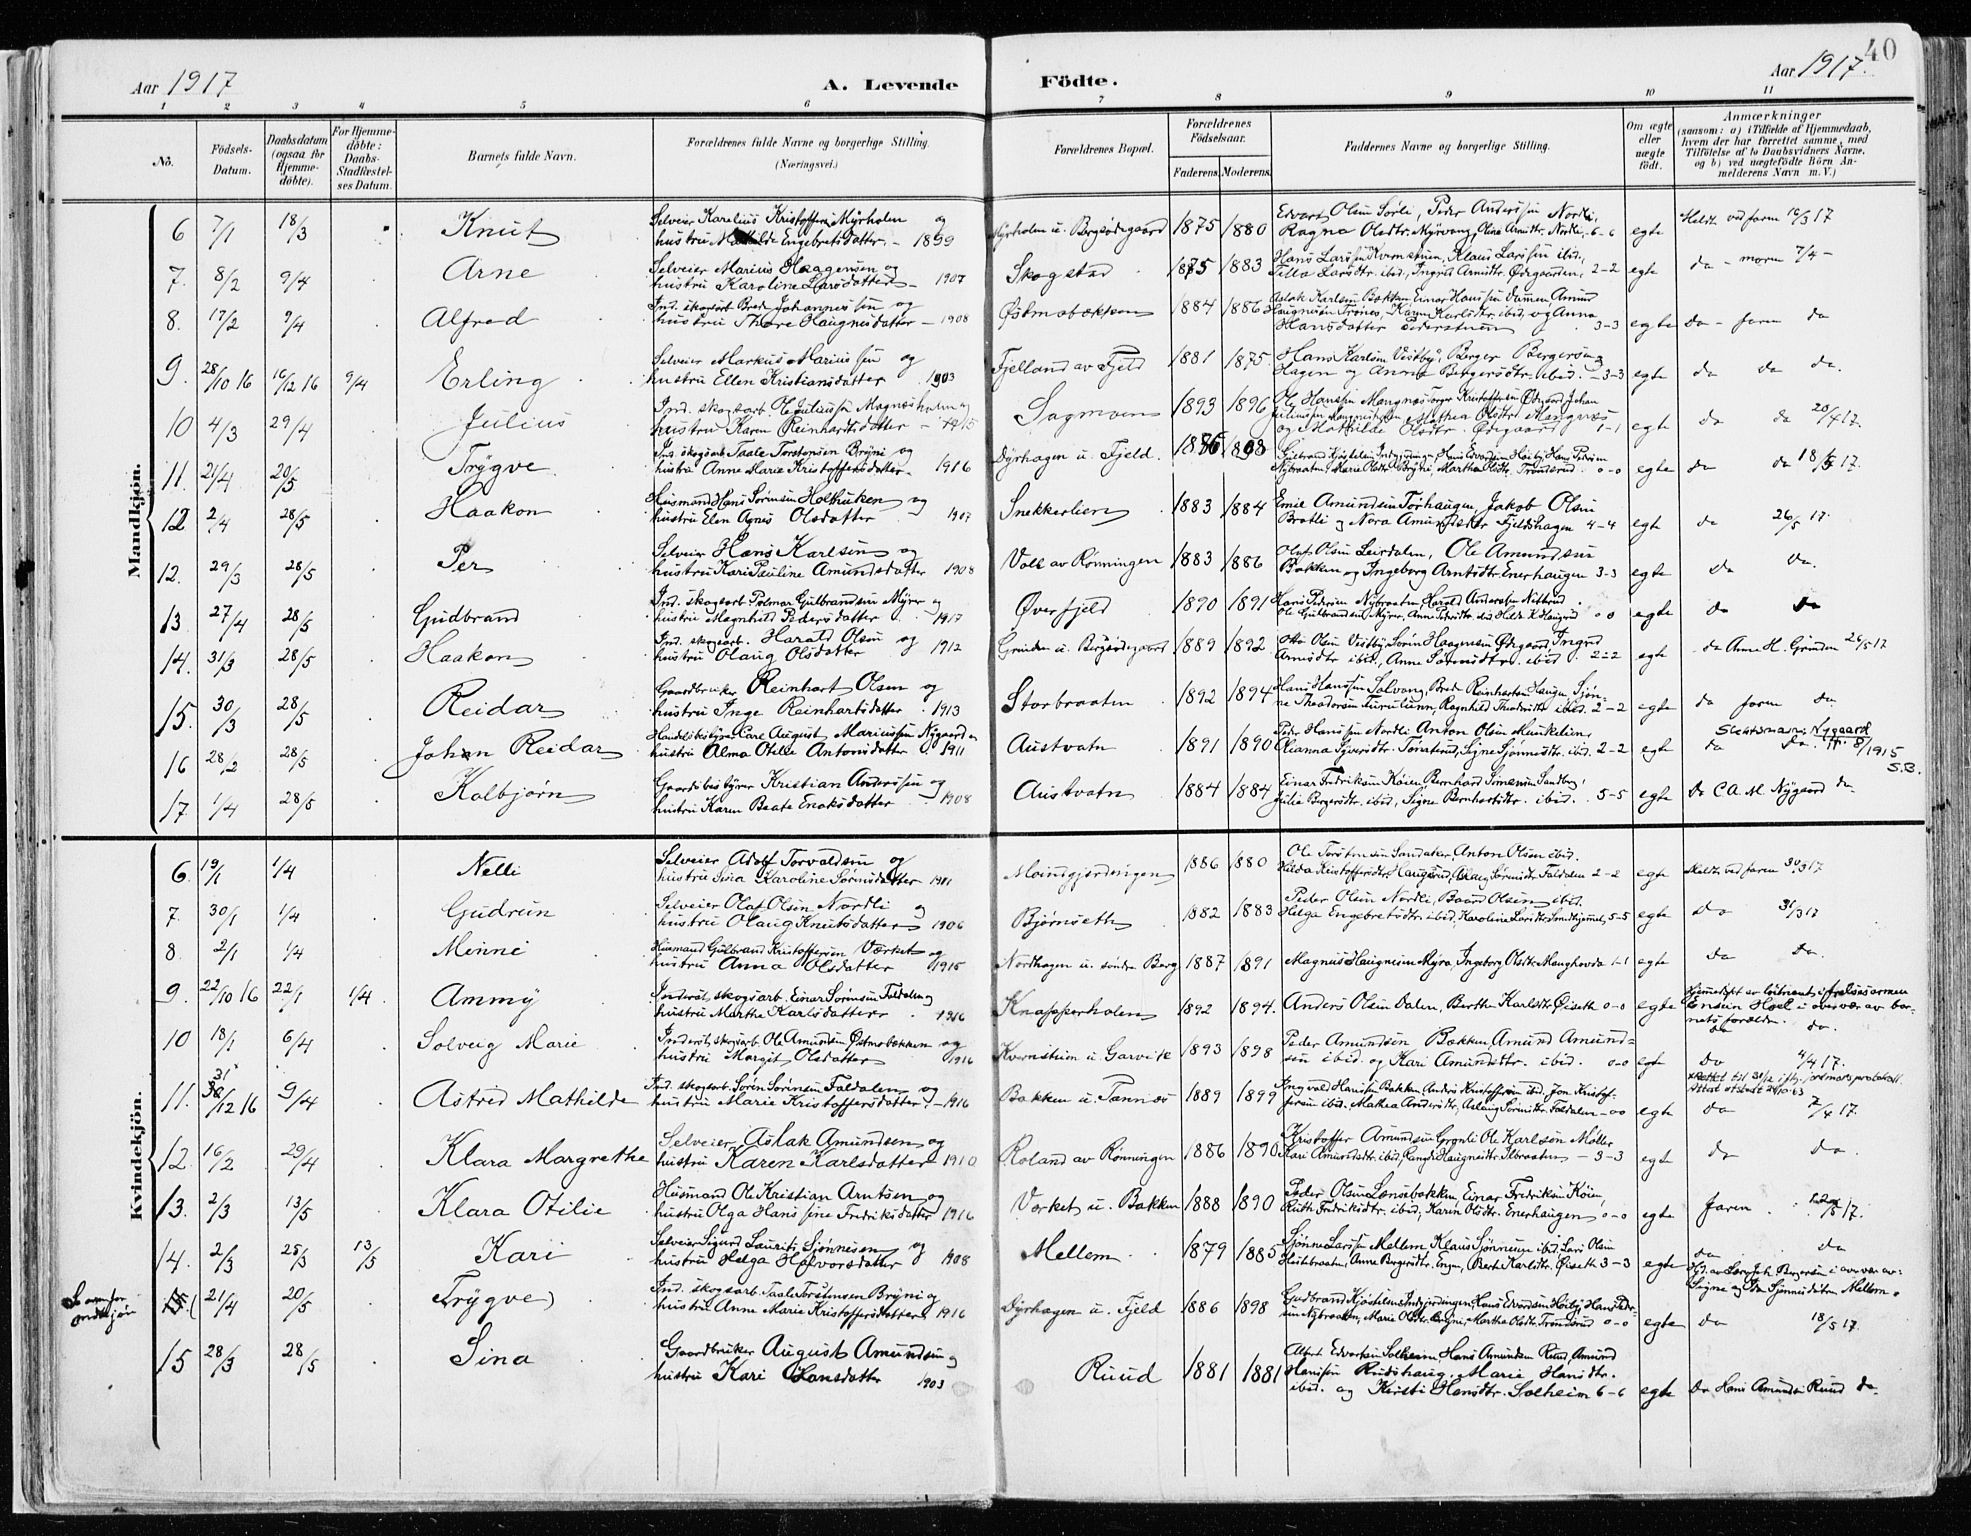 40
Aar 1917
A. Levende
Födte.
Aar 1917.
1 2 3 4 5 6 7 8 9 10 11
No.
Födsels-
Datum.
Daabsdatum
(ogsaa for
Hjemme-
döbte).
For Hjemme-
döbte:
Daabs-
Stadfæstel-
ses Datum.
Barnets fulde Navn.
Forældrenes fulde Navne og borgerlige Stilling.
(Næringsvei.)
Forældrenes Bopæl.
Forældrenes
Födselsaar.
Faderens. Moderens.
Faddernes Navne og borgerlige Stilling.
Om ægte
eller
uægte
födt.
Anmærkninger
(saasom: a) i Tilfælde af Hjemmedaab,
hvem der har forrettet samme, med
Tilföielse af to Daabsvidners Navne.
og b) ved uægtefödte Börn An-
melderens Navn m. V.)
Mandkjön.
6 7/1 18/3 Knut
Selveier Karelius Kristoffersen Myrholm og
hustru Mathilde Engebretsdatter. - 1899
Myrholm u. Bergsødegaard 1875 1880
Edvart Olsen Sørli, Peder Anderssen Nordli,
Ragna Olsdtr. Myrvang, Olina Arntdtr. Nordli. 6-6 egte
Meldt ved faren 16/3 17
7. 8/2 9/4 Arne
Selveier Marius Haagensen og
hustru Karoline Larsdatter - 1907
Skogstad 1875 1883
Hans Larssen Kvernstuen, Klaus Larssen ibid.,
Tilla Larsdtr. ibid., Ingrid Arnedtr. Ødegaarden, 2-2 egte
da - moren 7/4 -
8. 17/2 9/4 Alfred
Ind. skogsarb. Bred Johannessen og
hustru Thore Haugnesdatter - 1908
Østmobakken 1884 1886
Aslak Karlsen Bakken, Einar Hanssen Dammen, Amund
Haugnesen Trønes, Karen Karlsdtr. ibid. og Anna
Hansdatter Pederstuen 3-3 egte
da - faren da
9. 28/10 16 16/12 16 9/4 Erling
Selveier Markus Mariussen og
hustru Ellen Kristiansdatter 1903
Fjelland av Fjeld 1881 1875.
Hans Karlsen Vestby, Berger Bergersen
Hagen og Anna Bergersdtr. ibid. - 3-3 egte
da da da.
10 4/3 29/4 Julius
Ind. skogsarb. Ole Juliussen Magnesholm og
hustru Karen Reinhartsdatter - 1915
Sagmoen 1893 1896
Ole Hanssen Mangnæs, Torger Kristoffersen Ødegaard, Johan
Juliussen Mangnesholm, Mathea Olsdtr. Mangnæs
og Mathilde Olsdtr. Ødegaard 1-1 egte
da da 28/4 17.
11. 21/4 20/5 Trygve
Ind. skogsarb. Taale Torstensen Bryni og
hustru Anne Marie Kristoffersdatter - 1916
Dyrhagen u. Fjeld. 1886 1898
Gulbrand Kjøstelsen Indgjerdingen, Hans Edvardsen Høiby, Hans Pedersen
Nybraaten, Marie Olsdtr. Bryni, Martha Olsdtr. Trondsrud. 0-0 egte
da da 18/5 17.
12 2/4 28/5 Haakon
Husmand Hans Sørensen Holthuken og
hustru Elen Agnes Olsdatter 1907
Snekkerlien 1883 1884
Emil Amundsen Torhaugen, Jakob Olsen
Bratli og Nora Amundsdtr Fjeldshagen 4-4 egte
da 26/5 17.
12. 29/3 28/5 Per
Selveier Hans Karlsen og
hustru Kari Pauline Amundsdatter 1908
Voll av Rønningen 1883 1886
Olaf Olsen Leirdalen, Ole Amundsen
Bakken og Ingeborg Arntsdtr. Enerhaugen 3-3 egte
da da.
13. 27/4 28/5 Gudbrand
Ind. skogsarb Polmar Gulbrandsen Myrer og
hustru Magnhild Pedersdatter 1917
Øverfjeld 1890 1891
Hans Pedersen Nybraaten, Harald Andersen Nitterud,
Ole Gulbrandsen Myrer, Anne Pedersdtr. ibid Hilda K Haugrud 0 0 egte
da da
14. 31/3 28/5 Haakon
Ind. skogsarb. Harald Olsen og
hustru Olaug Olsdatter 1912
Grinden u. Bergsødegaard 1889 1892
Otto Olsen Vestby, Søren Haagensen Ødegaard, Ingrid
Arnesdtr ibid., Anne Sørensdtr. ibid. 2-2 egte
da Anne H. Grinden 26/5 17
15. 30/3 28/5 Reidar
Gaardbruker Reinhart Olsen og
hustru Inge Reinhartsdatter. 1913
Storbraaten 1892 1894
Hans Hanssen Solvang, Bred Reinhartsen Haugen, Sjøn-
ne Theodorsen Furulunn, Ragnhild Theodorsdtr ibid. 2-2 egte
da faren da
16 28/2 28/5 Johan Reidar
Handelsbestyrer Carl August Mariussen Nygaard og
hustru Alma Otilie Antonsdatter 1911
Austvatn 1891 1890
Peder Hanssen Nordli, Anton Olsen Munkelien,
Elianna Syversdtr. Tørüterud, Signe Sjønnesdtr. ibid. 2-2 egte
Slektsnavn: Nygaard
da da. iflg. 8/1915
S.B.
17. 1/4 28/5 Kolbjørn
Gaardsbestyrer Kristian Anderssen og
hustru Karen Beate Enoksdatter 1908
Austvatn 1884 1884
Einar Fredriksen Køien, Bernhard Simensen Sandberg,
Julie Bergersdtr. ibid., Signe Bernhartsdtr. ibid. 5-5 egte
da C.A. M. Nygaard da
Kvindekjön.
6. 19/1 1/4 Nelli
Selveier Adolf Torvaldsen og
hustru Sina Karoline Sørensdatter 1911
Moinngjerdingen 1886 1880
Ole Torstensen Sandaker, Anton Olsen ibid.
Hilda Kristoffersdtr. Haugerud, Aslaug Sørensdtr. Faldalen 2-2 egte
Meldt ved faren 30/3 17
7. 30/1 1/4 Gudrun
Selveier Olaf Olsen Nordli og
hustru Olaug Knutsdatter 1906
Bjørnseth 1882 1883
Peder Olsen Nordli, Baard Olsen ibid.
Helga Engebretsdtr. ibid, Karoline Larsdtr. Smedhjemmet, 5-5 egte
da 31/3 17
8. 2/1 1/4 Minni
Husmand Gulbrand Kristoffersen Værket og
hustru Anna Olsdatter 1915
Nordhagen u. søndre Berg 1887 1891
Magnus Haugnesen Myra, Ingeborg Olsdtr. Manghovda 1-1 egte
da da.
9 22/10 16 22/1 1/4 Ammy
Inderst, skogsarb. Einar Sørensen Faldalen og
hustru Marthe Karlsdatter. 1916
Knapperholen 1892 1894.
Anders Olsen Dalen, Berthe Karlsdtr. Øiseth 0-0 egte
Hjemmedøpt av løitnant i frelsesarmeen
Ensein Hoel i overvær av bar-
nets forældre.
da da.
10 18/1 6/4 Solveig Marie
Inderst, skogsarb. Ole Amundsen Østmobakken og
hustru Margit Olsdatter 1916
Kvernstuen u. Garvik 1893 1898
Peder Amundsen Bakken, Amund Amund-
sen ibid. og Kari Amundsdtr. ibid. 0-0 egte
da 4/4 17.
11. 31/12 16 9/4 Astrid Mathilde
Ind. skogsarb. Søren Sørensen Faldalen og
hustru Marie Kristoffersdatter. - 1916
Bakken u. Tannes 1889 1899
Ingvald Hanssen Bakken, Anders Kristoffersen ibid, Jon Kristof-
fersen ibid. Mathea Andersdtr, Aslaug Sørensdtr. Faldalen - 0-0 egte
x Rettet til 31/12 iflg. jordmorsprotokoll.
da 7/4 17.
12 16/2 29/4 Klara Margrethe
Selveier, Aslak Amundsen og
hustru Karen Karlsdatter 1910
Roland av Rønningen 1886 1890
Kristoffer Amundsen Grønli, Ole Karlsen Møller,
Kari Amundsdtr. ibid, Randi Haugnesdtr. Ilbraaten - 3-3 egte
da da.
13. 2/3 13/5 Klara Otilie
Husmand Ole Kristian Arntsen og
hustru Olga Hanssine Fredriksdatter 1916
Værket u. Bakken 1888 1890
Peder Olsen Lansebakken, Einar Fredriksen Køien,
Ruth Fredriksdtr. ibid, Karin Olsdtr. Enerhaugen 0-0 egte
Faren 12/5 17.
14. 2/3 25/3 13/5 Kari
Selveier Sigurd Laurits Sjønnesen og
hustru Helga Halvorsdatter 1908
Mellem 1879 1885
Sjønne Larssen Mellem, Klaus Sjønnesen ibid, Lars Olsen
Heitebraaten, Anne Bergersdtr. Engen, Berte Karlsdtr. Øiseth 3-3 egte
da da
Hjd. av Lars Joh. Bergersen i overvær av:
Signe og Ida Sjønnesdatter Mellem.
Se ovenfor
mandkjøn
15 ( 21/4 20/5 Trygve )
Ind. skogsarb. Taale Torstensen Bryni og
hustru Anne Marie Kristoffersdatter 1916
Dyrhagen u. Fjeld 1886 1898
Gudbrand Kjøstelsen Indgjerdingen, Hans Edvardsen Høiby, Hans Peder-
sen Nybraaten, Marie Olsdtr. Bryni, Martha Olsdtr. Trondsrud 0-0 egte
da 18/5 17.
15 28/3 28/5 Sina
Gaardbruker August Amundsen og
hustru Kari Hansdatter 1903
Ruud 1881 1881
Albert Edvartsen Solheim, Hans Amundsen Ruud, Amund
Hanssen Rudshaug, Marie Hansdtr.
ibid. og Kirsti Hansdtr. Solheim 6-6 egte
da Hans Amundsen Ruud da